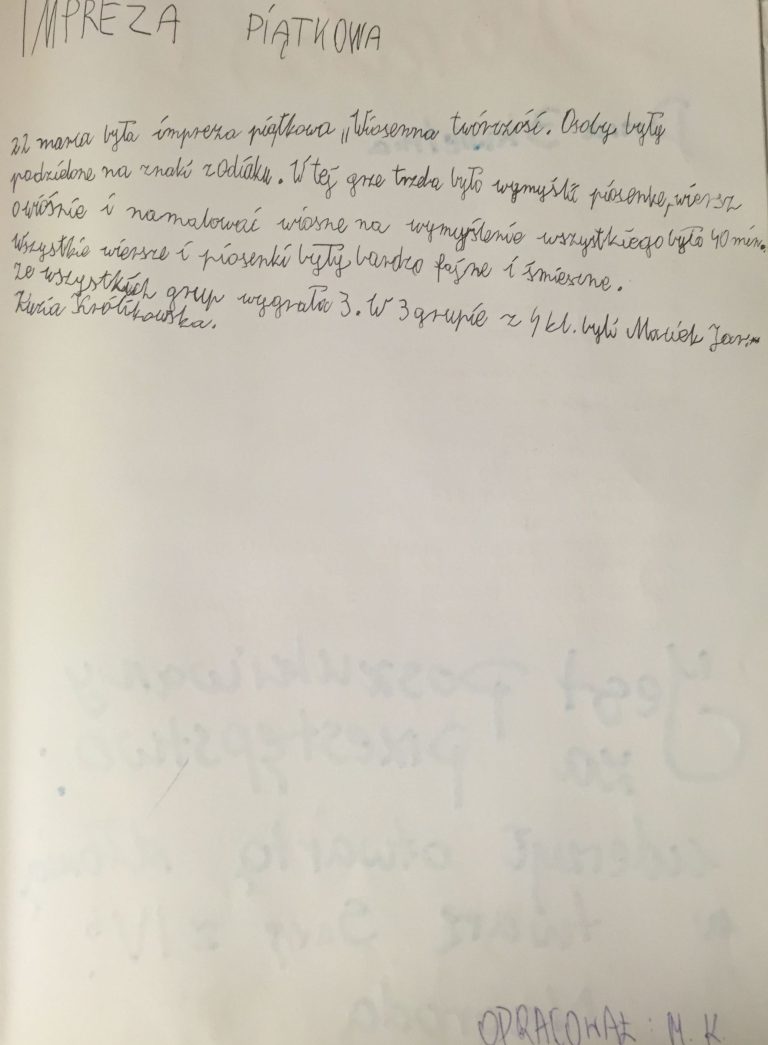 IMPREZA PIĄTKOWA
22 marca była impreza piątkowa „Wiosenna twórczość. Osoby były
podzielone na znaki zodiaku. W tej grze trzeba było wymyślić piosenkę, wiersz
o wiośnie i namalować wiosnę na wymyślenie wszystkiego było 40 min.
Wszystkie wiersze i piosenki były bardzo fajne i śmieszne.
Ze wszystkich grup wygrała 3. W 3 grupie z 4 kl. byli Maciek Jar.
Kuzia Królikowska.
Jest poszukiwany
za przestępstwo
uderzył otwartą
w twarz
OPRACOWAŁ: M. K.